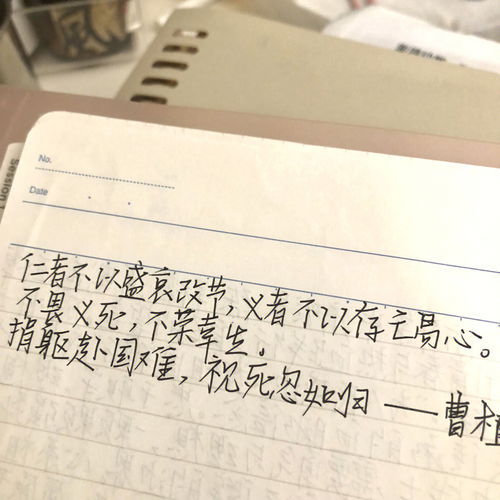 No.
Date
Session
仁者不以盛衰改节，义者不以存亡易心。
不畏义死，不荣幸生。
捐躯赴国难，视死忽如归 —— 曹植